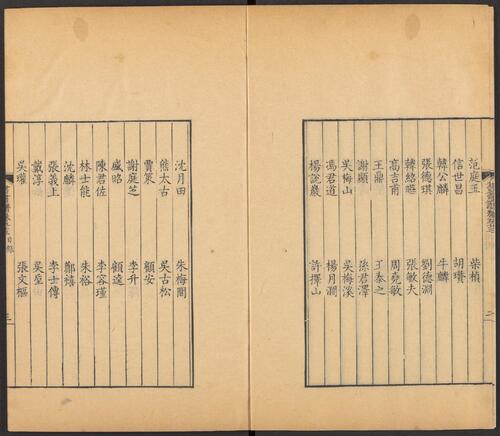 范庭玉 柴楨
信世昌 胡瓚
韓公麟 牛麟
張德琪 劉德淵
韓紹曄 張敏夫
高吉甫 周堯敏
王鼎 王泰之
謝顯 孫君澤
吳梅山 吳梅溪
馮君道 楊月澗
楊說巖 許擇山
沈月田 朱梅閒
熊太古 吳古松
賈策 顧安
謝庭芝 李升
盛昭 顧逵
陳君佐 李容瑾
林士能 朱裕
沈麟 鄭禧
張義上 李士傳
戴淳 吳庭
吳瓘 張文樞